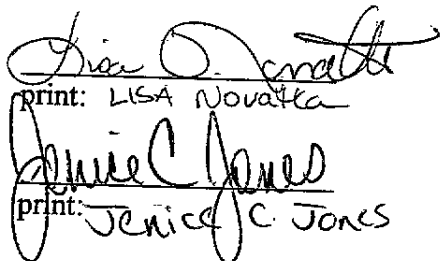 Lisa
print: LISA Novatka
Jenice C Jones
print: Jenice C. Jones